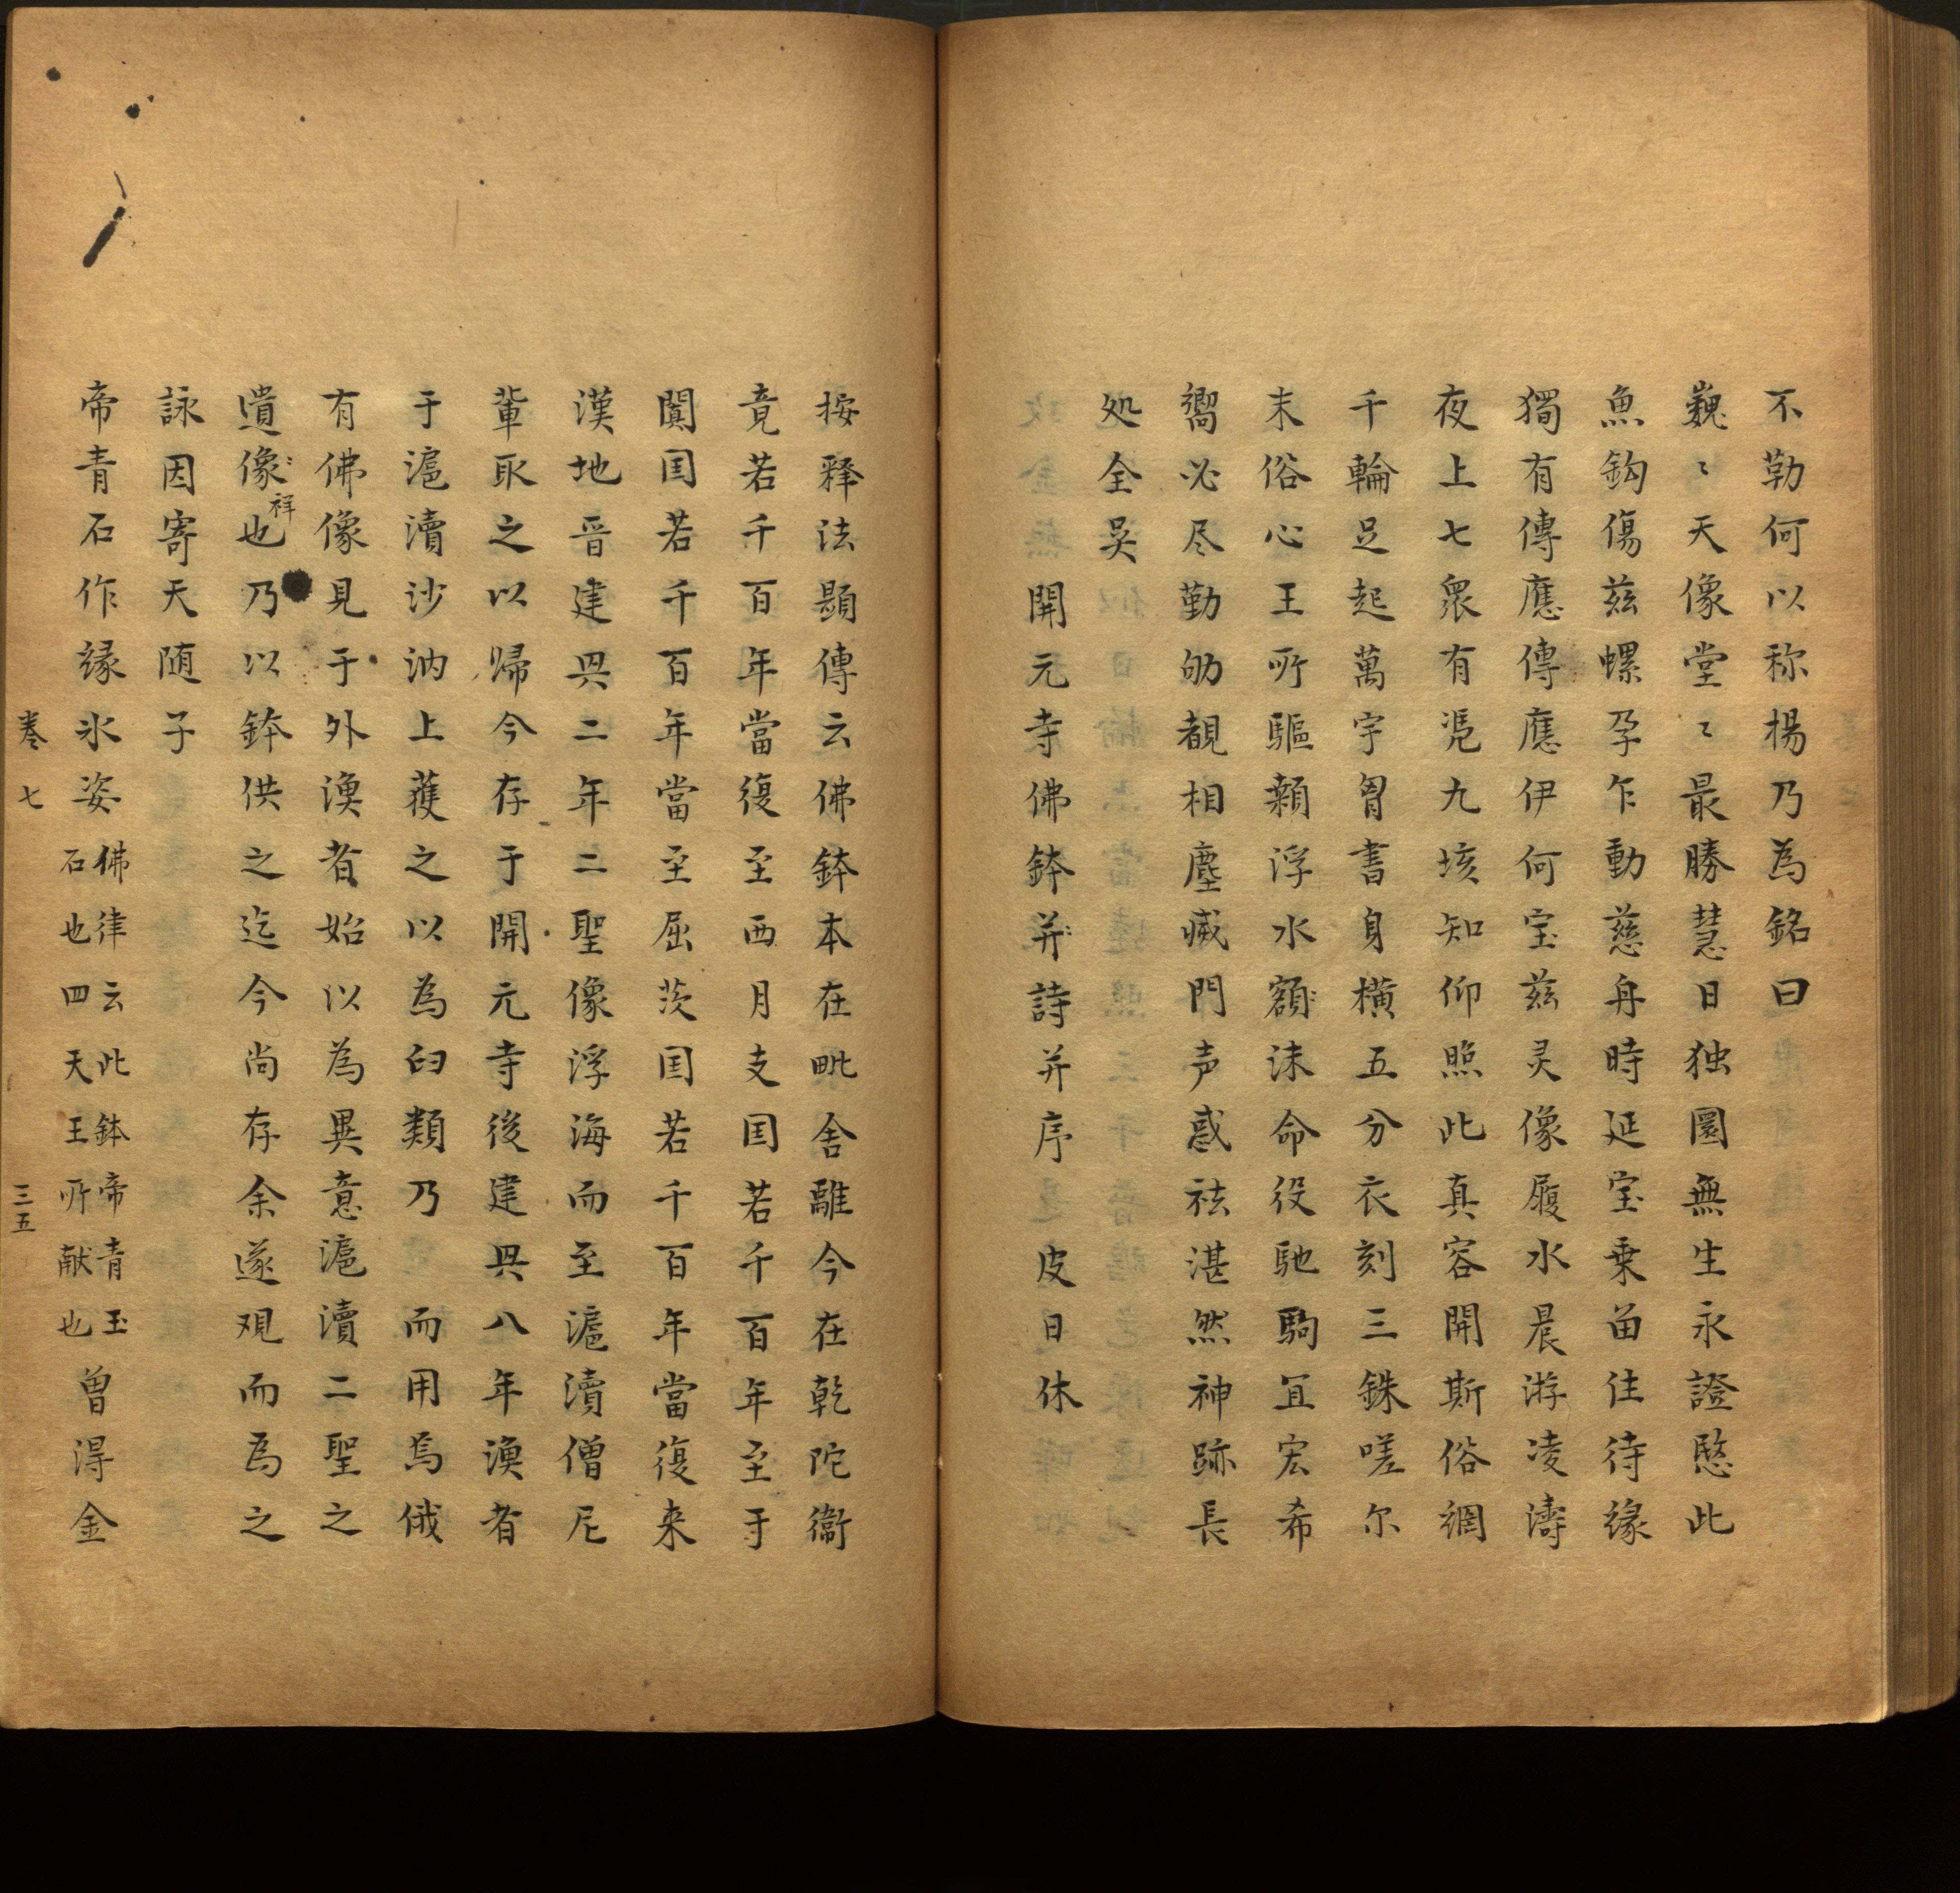 不勒何以称揚乃為銘曰
巍〻天像堂〻最勝慧日独圜無生永證愍此
魚鈎傷兹螺孕乍動慈舟時延宝乗畱住待緣
獨有傳應傳應伊何宝兹灵像履水晨游凌濤
夜上七衆有凴九垓知仰照此真容開斯俗網
千輪足起萬字胷書身横五分衣刻三銖嗟尔
末俗心王所驅頼浮水額沫命役馳駒冝宏希
嚮必尽勤劬覩相塵瘷門声惑祛湛然神跡長
処全吴
開元寺佛鉢并詩并序 皮日休
按释法顯傳云佛鉢本在毗舍離今在乾陀衞
竟若千百年當復至西月支国若千百年至于
闐国若千百年當至屈茨国若千百年當復来
漢地晋建興二年二聖像浮海而至滬瀆僧尼
輩取之以歸今存于開元寺後建興八年漁者
于滬瀆沙汭上獲之以為臼類乃 而用焉俄
有佛像見于外漁者始以為異意滬瀆二聖之
遺像也乃以鉢供之迄今尚存余遂观而為之
祥
詠因寄天随子
帝青石作緣氷姿佛律云此鉢帝青玉石也四天王所献也曾得金
卷七 三五